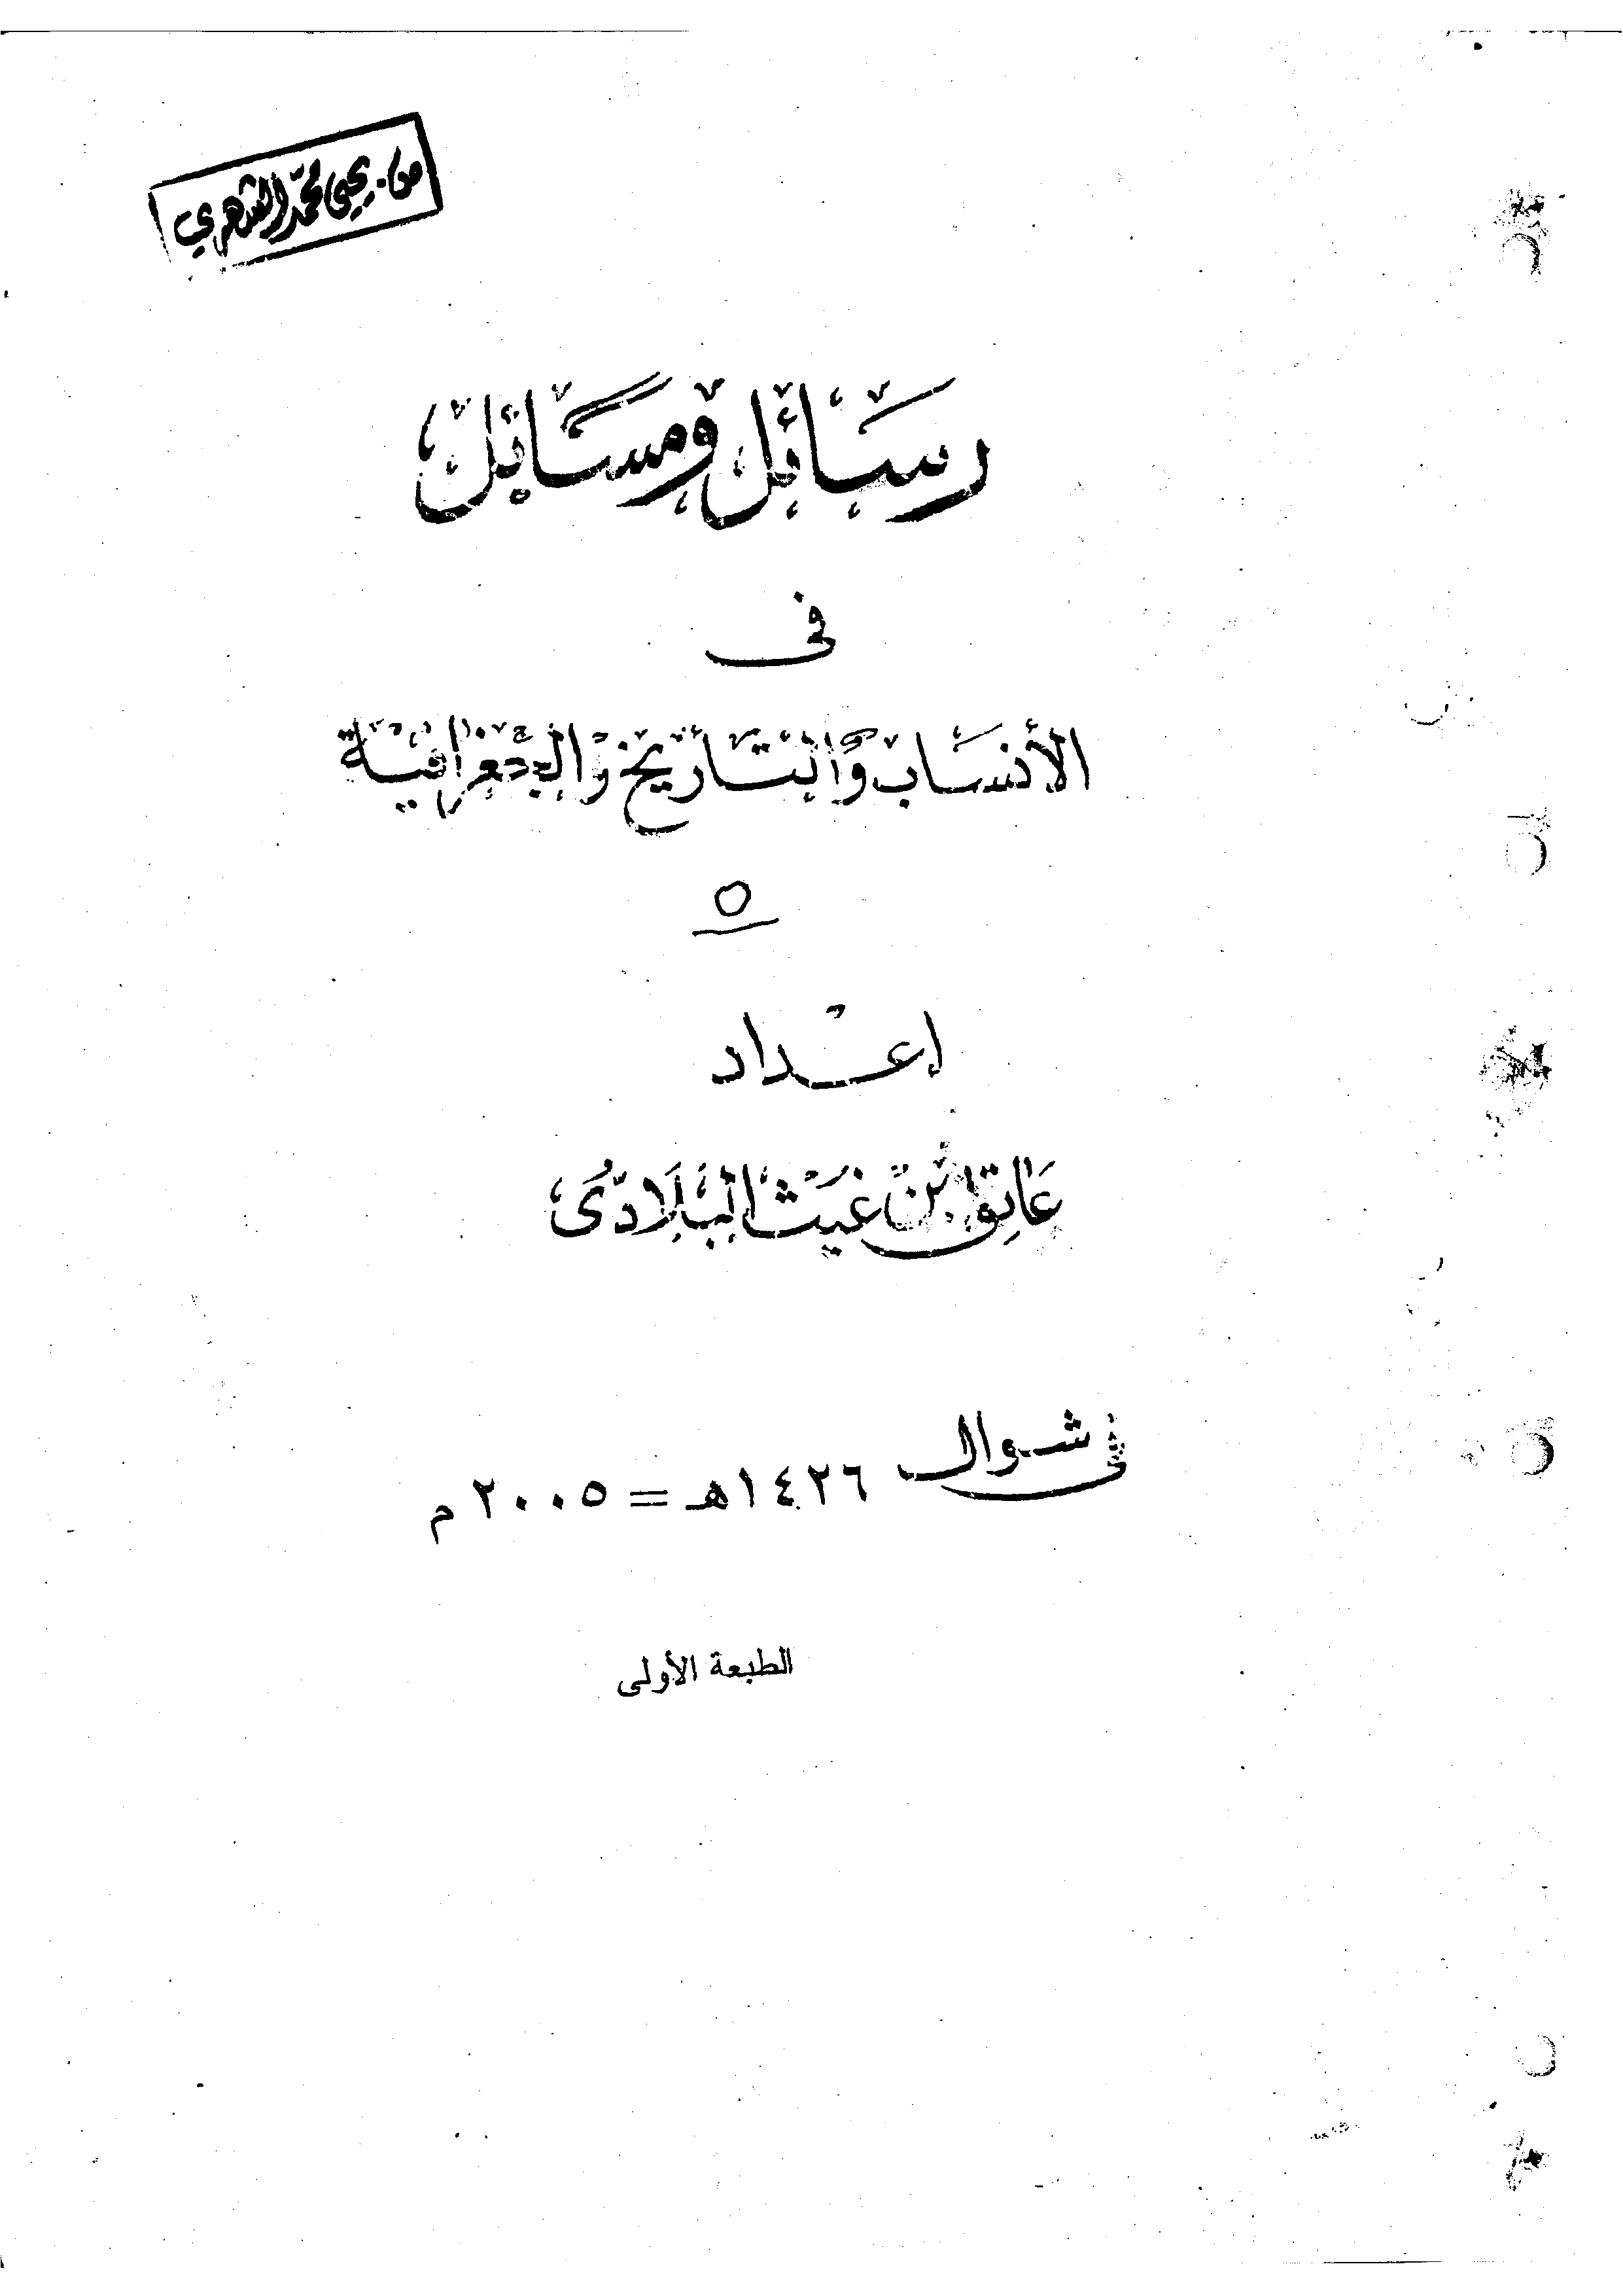 من. يحيى محمد الشهري
رسائل ومسائل
فى
الأنساب والتاريخ والجغرافية
٥
إعداد
عاتق بن غيث البلادى
فى شوال ١٤٢٦هـ = ٢٠٠٥م
الطبعة الأولى